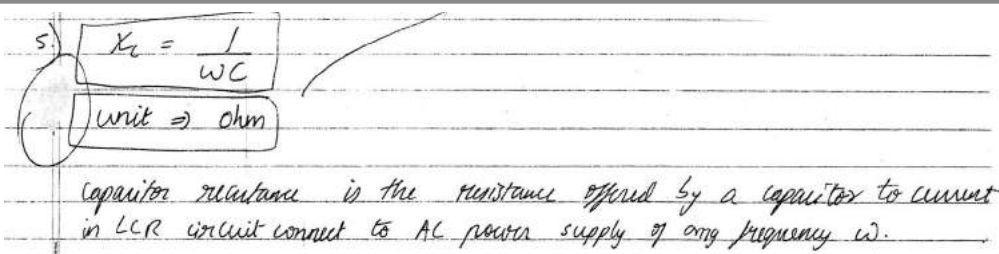 5.) Xc = 1/ωC
unit ⇒ ohm
capacitor reactance is the resistance offered by a capacitor to current
in LCR circuit connect to AC power supply of ang frequency ω.